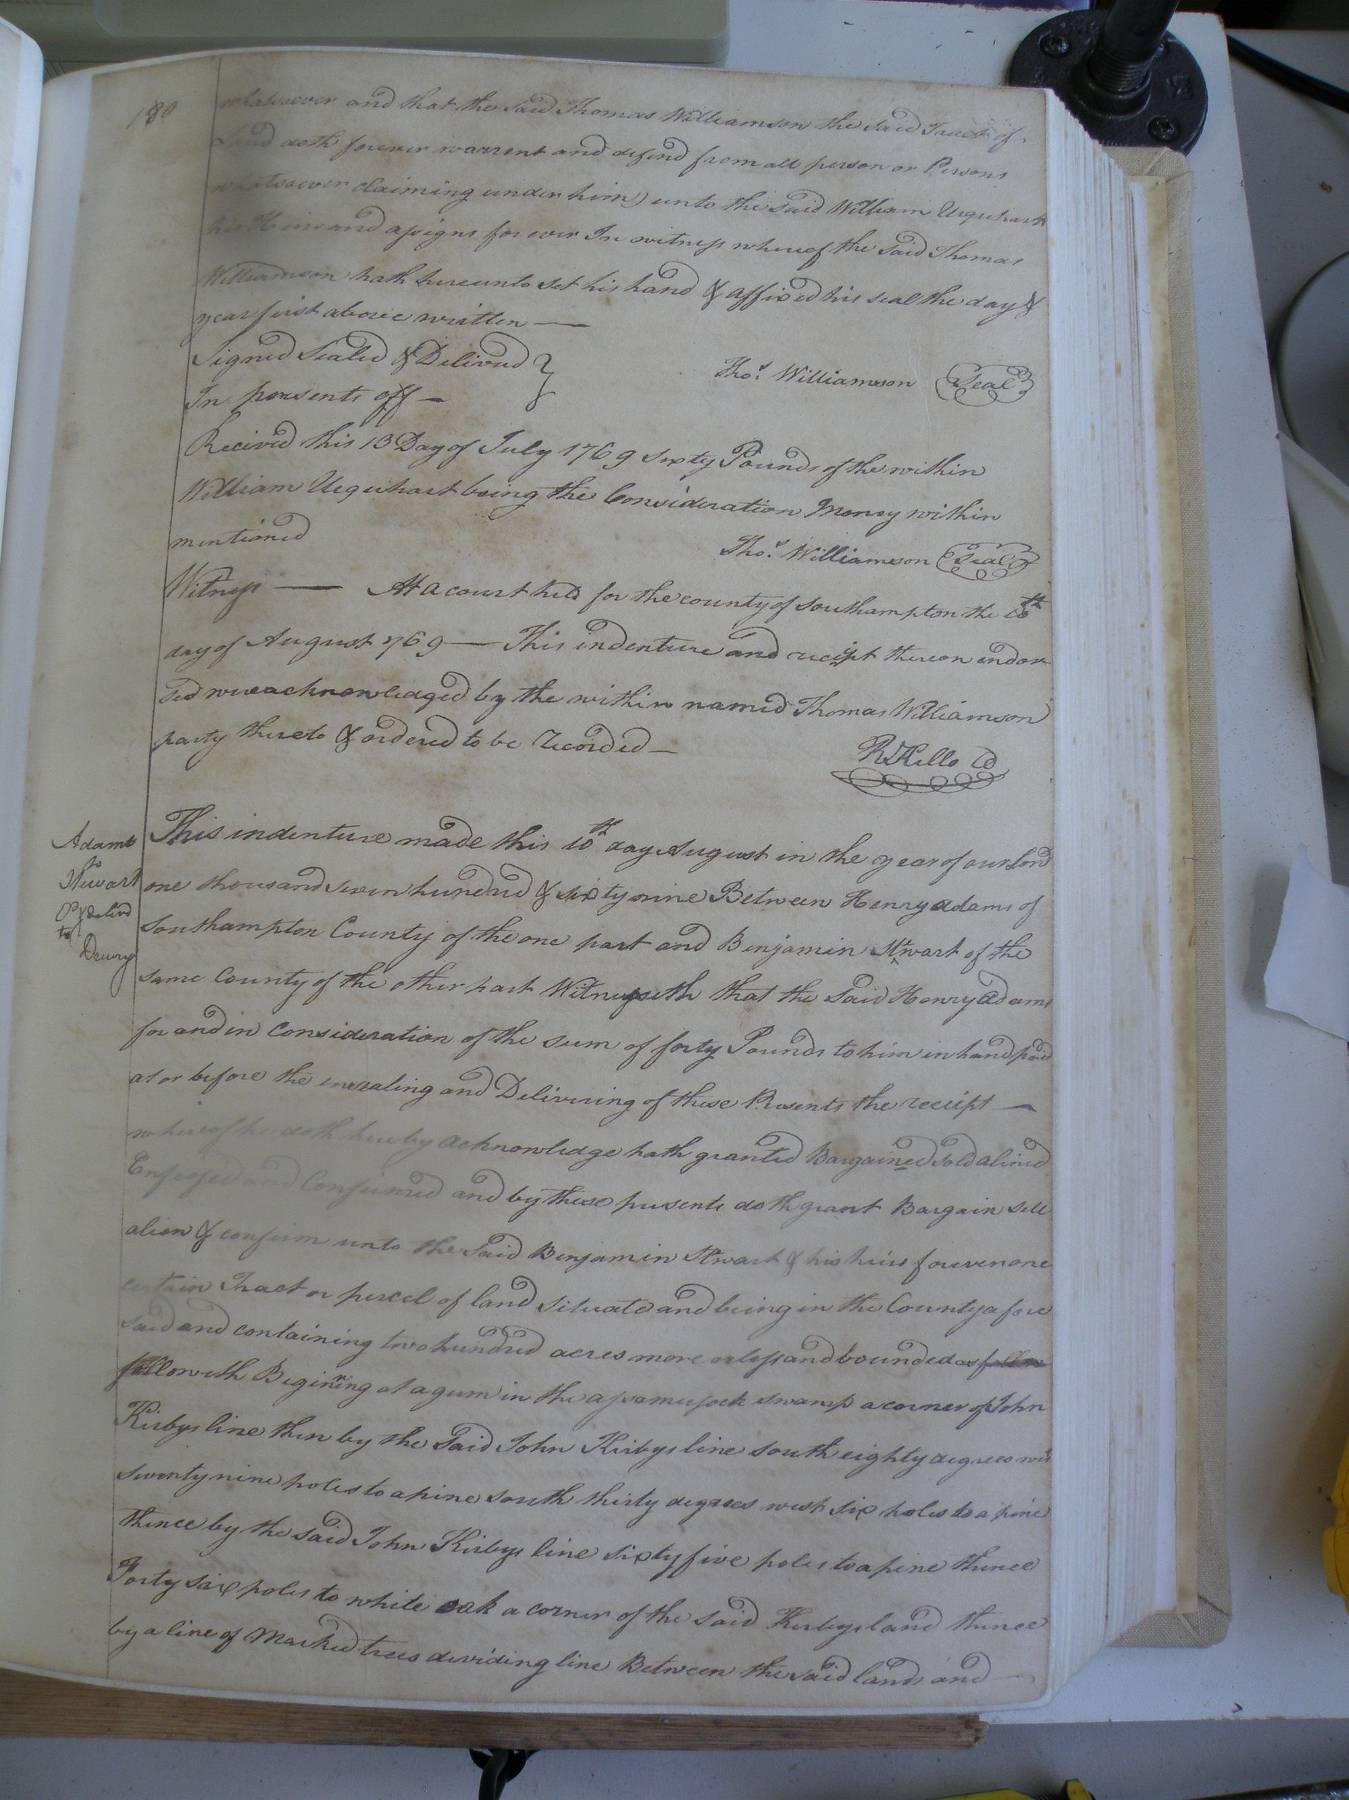 180
whatsoever and that the said Thomas Williamson the said Tract of
Land doth forever warrent and defend from all person or Persons
whatsoever claiming under him) unto the said William Urquhart
his Heirs and assigns for ever In witness whereof the said Thomas
Williamson hath hereunto set his hand & affixed his seal the day &
year first above written —
Signed Sealed & Delived }
In presents off —
Thos. Williamson Seal
Recived this 13 Day of July 1769 sixty Pounds of the within
William Urquhart being the Consideration Money within
mentioned
Thos. Williamson Seal
Witness — At a court held for the county of Southampton the 10th
day of August 1769 — This indenture and reciept thereon endor
sed were acknowledged by the within named Thomas Williamson
party thereto & ordered to be recorded —
R Kello
Adams
to
Stewart
Drury
This indenture made this 10th day August in the year of our lord
one thousand seven hundred & sixty nine Between Henry Adams of
Southampton County of the one part and Benjamin Stwart of the
same County of the other part Witnesseth that the Said Henry Adams
for and in Consideration of the sum of forty Pounds to him in hand paid
at or before the ensealing and Delivering of these Presents the receipt —
whereof he doth hereby acknowledge hath granted Bargained Sold alined
Enfeofed and Confirmed and by these presents doth grant Bargain sell
alien & confirm unto the Said Benjamin Stwart & his heirs forever one
certain Tract or percel of land situate and being in the County afore
said and containing two hundred acres more or less and bounded as follow
followeth Begining at a gum in the assamusock swamp a corner of John
Kirbys line then by the Said John Kirbys line south eighty degrees west
seventy nine poles to a pine south thirty degrees west six poles to a pine
thence by the said John Kirbys line sixty five poles to a pine thence
Forty six poles to white oak a corner of the said Kirbys land thence
by a line of Marked trees deviding line Between the said lands and —